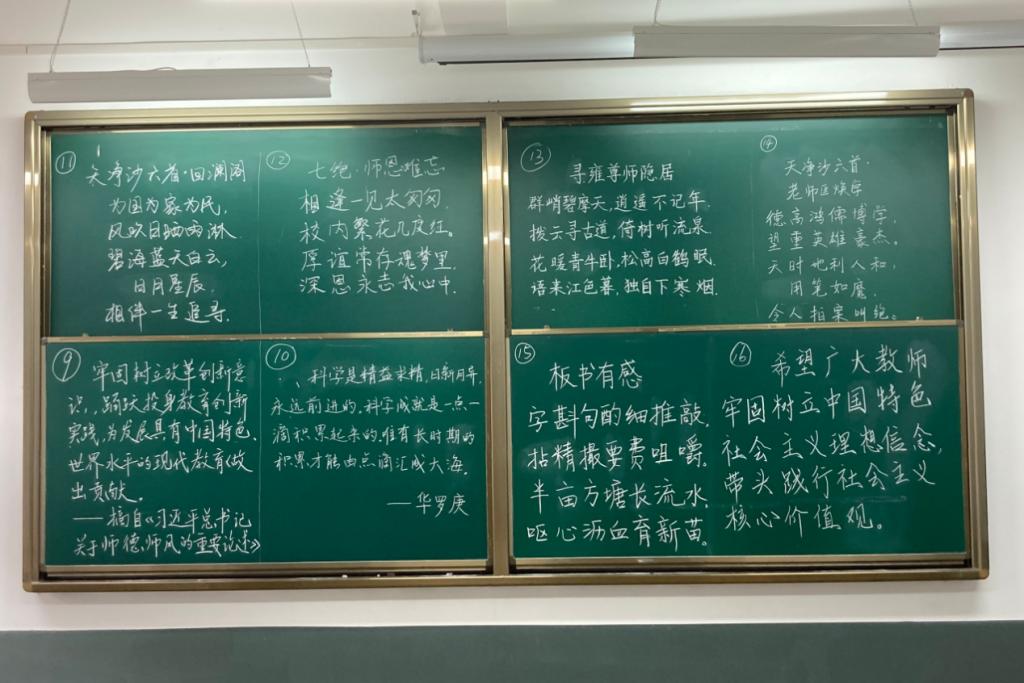 ⑪
天净沙六首·回澜阁
为国为家为民,
风吹日晒雨淋
碧海蓝天白云,
日月星辰,
相伴一生追寻.
⑫
七绝·师恩难忘
相逢一见太匆匆,
校内繁花几度红。
厚谊常存魂梦里,
深恩永志我心中.
⑬
寻雍尊师隐居
群峭碧摩天,逍遥不记年.
拨云寻古道,倚树听流泉.
花暖青牛卧,松高白鹤眠.
语来江色暮,独自下寒烟.
⑭
天净沙六首·
老师
德高鸿儒博学,
望重英雄豪杰。
天时地利人和,
用笔如魔,
令人拍案叫绝。
⑨
牢固树立改革创新意
识,踊跃投身教育创新
实践,为发展具有中国特色、
世界水平的现代教育做
出贡献。
——摘自《习近平总书记
关于师德师风的重要论述》
⑩
科学是精益求精,日新月异,
永远前进的,科学成就是一点一
滴积累起来的,惟有长时期的
积累才能由点滴汇成大海。
——华罗庚
⑮
板书有感
字斟句酌细推敲,
拈精撮要费咀嚼.
半亩方塘长流水,
呕心沥血育新苗.
⑯
希望广大教师
牢固树立中国特色
社会主义理想信念,
带头践行社会主义
核心价值观。